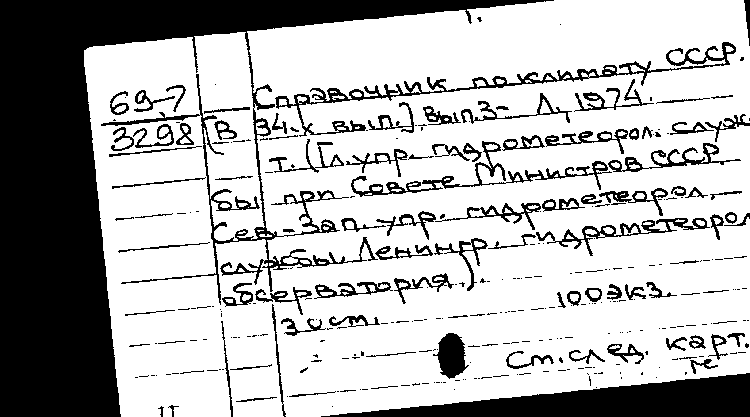 69-7
3298
Справочник по климату СССР.
[В 34-х вып.]. Вып. 3- Л., 1974.
т. (Гл. упр. гидрометеорол. служ-
бы при Совете Министров СССР.
Сев.-Зап. упр. гидрометеорол.
службы. Ленингр. гидрометеорол
обсерватория).
100 экз.
См. след. карт.